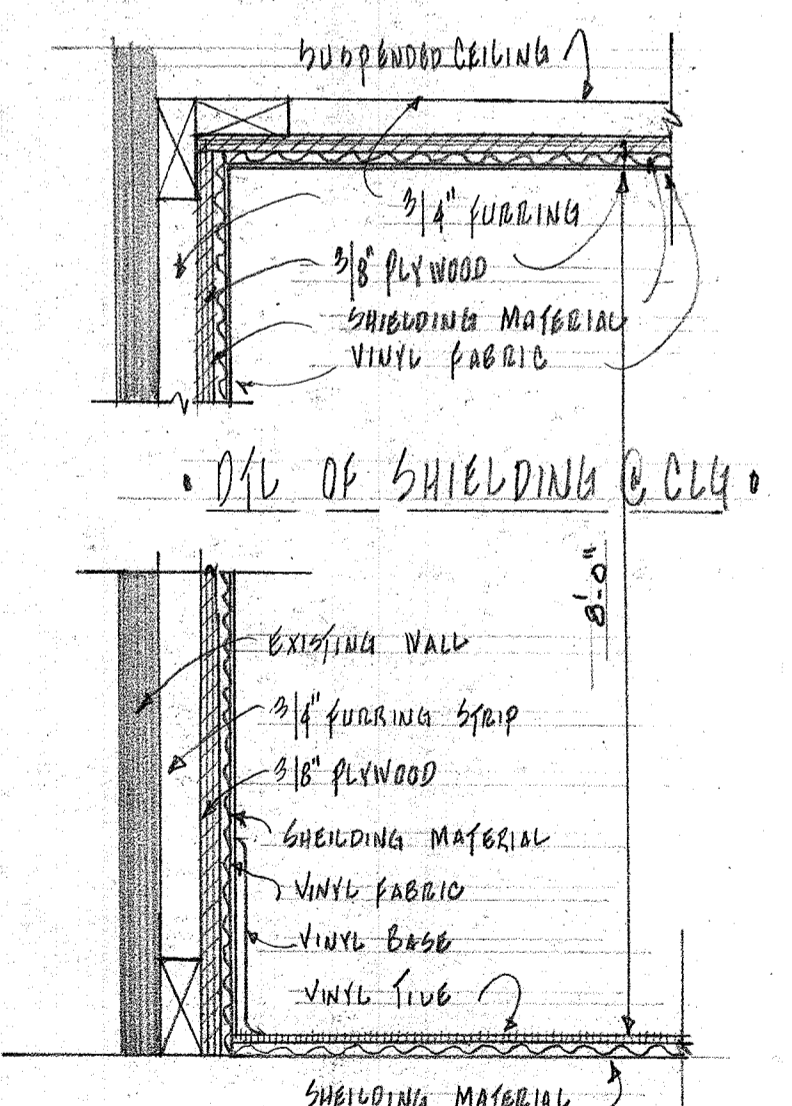 SUSPENDED CEILING
3/4" FURRING
3/8" PLYWOOD
SHIELDING MATERIAL
VINYL FABRIC
• DTL OF SHIELDING @ CLG •
8'-0"
EXISTING WALL
3/4" FURRING STRIP
3/8" PLYWOOD
SHEILDING MATERIAL
VINYL FABRIC
VINYL BASE
VINYL TILE
SHEILDING MATERIAL